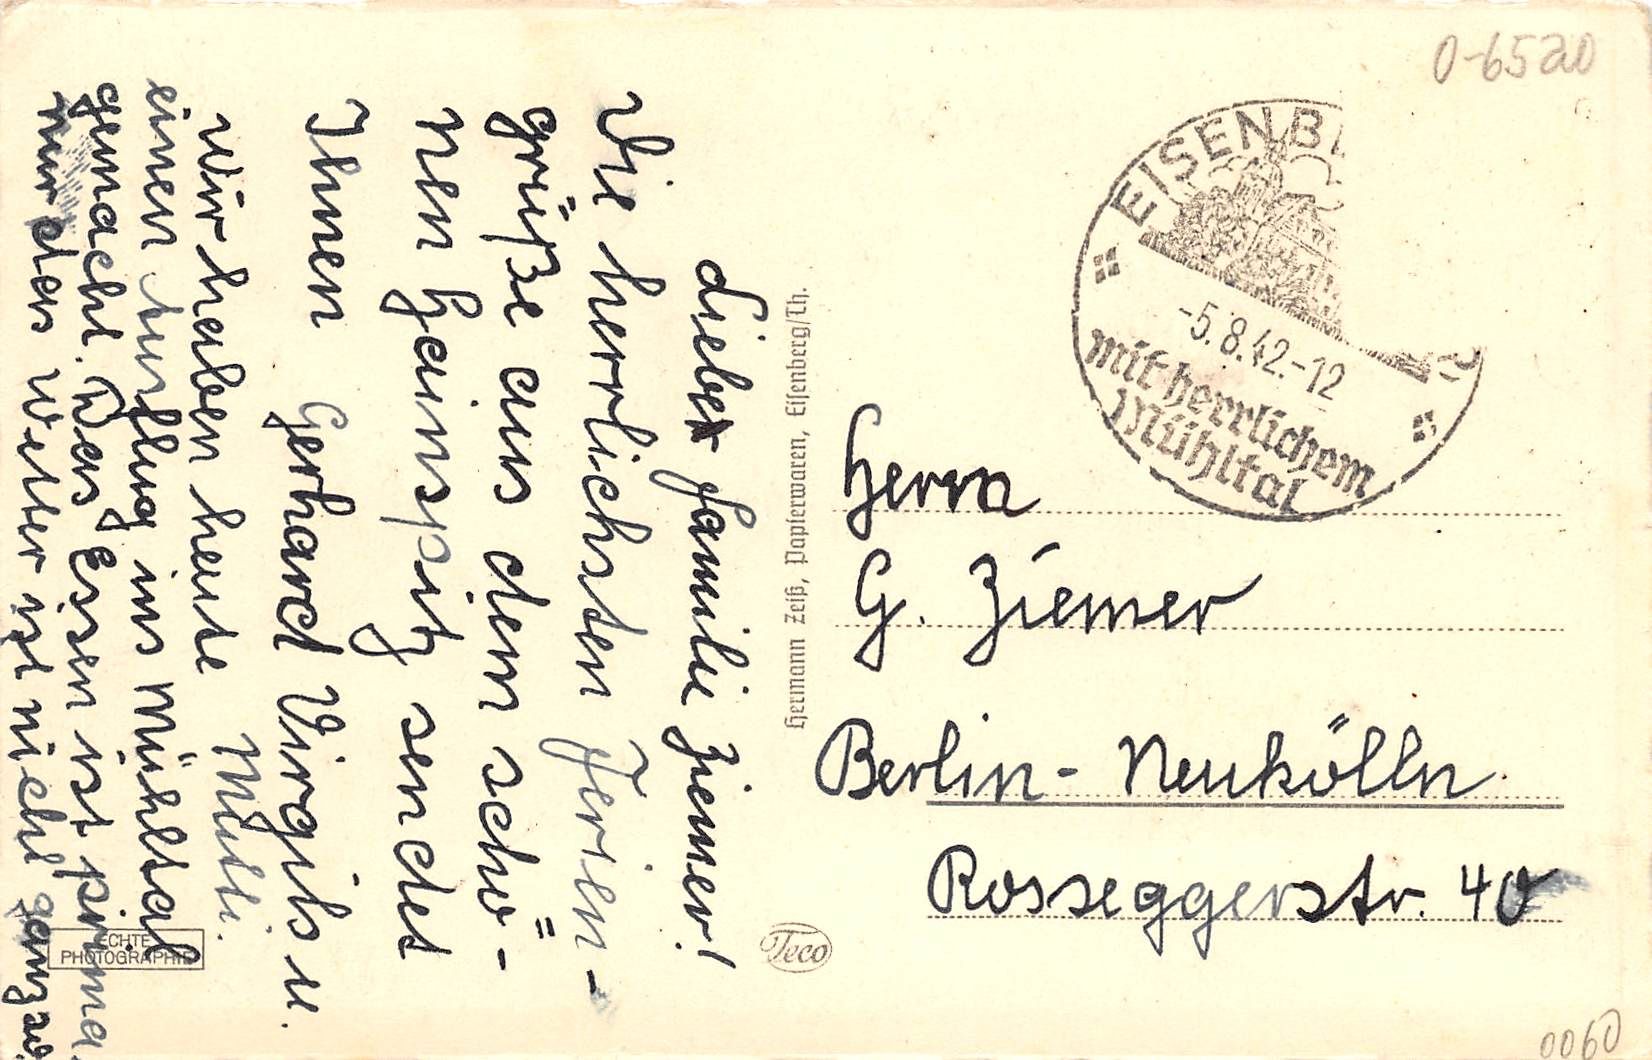 0-6520
EISENB
-5.8.42.-12
mit herrlichem
Mühltal
Herrn
G. Ziemer
Berlin- Neukölln
Rosseggerstr. 40
0060
Hermann Zeiß, Papierwaren, Eisenberg/Th.
Teco
ECHTE
PHOTOGRAPHIE
Liebe Familie Ziemer!
Die herrlichsten Ferien-
grüße aus dem schö-
nen Hainspitz sendet
Ihnen Gerhard Virgils u.
Mutti.
Wir haben heute
einen Ausflug ins Mühltal
gemacht. Das Essen ist prima.
nur das Wetter ist nicht ganz so.